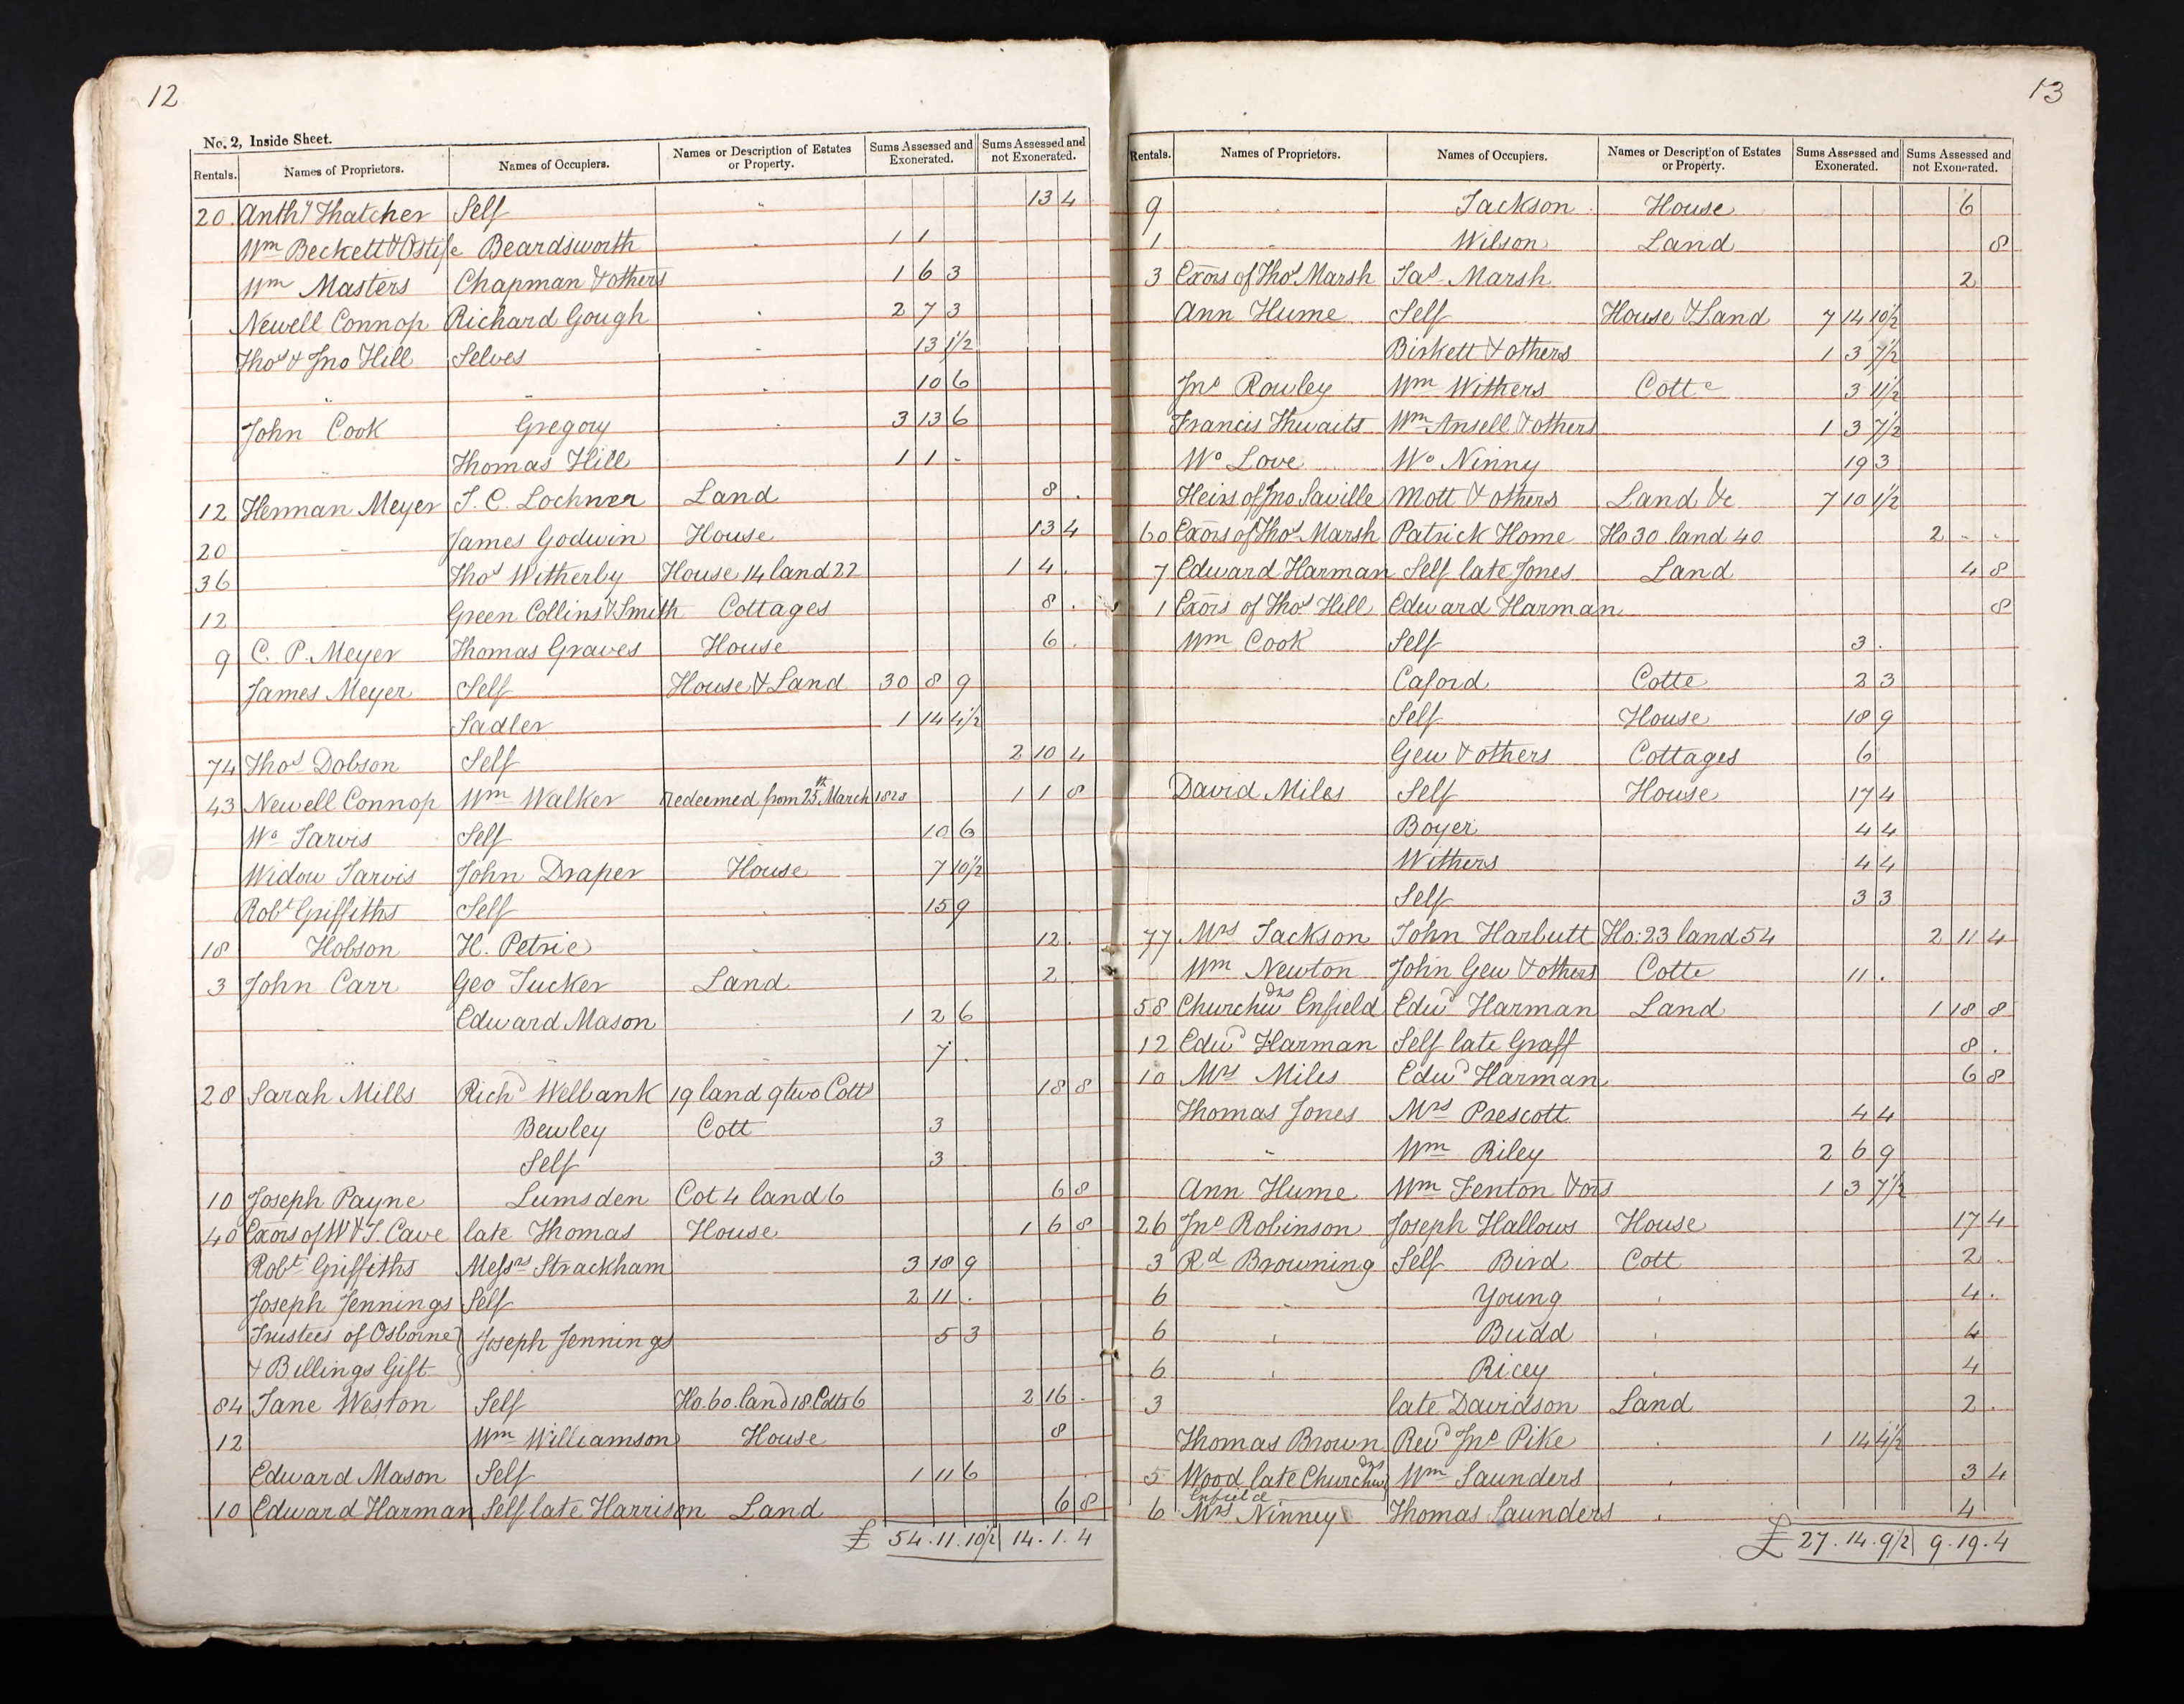 12
No. 2, Inside Sheet.
Rentals. Names of Proprietors. Names of Occupiers. Names or Description of Estates or Property. Sums Assessed and Exonerated. Sums Assessed and not Exonerated.
20 Anthy Thatcher Self " 13 4
Wm Beckett & Beardsworth " 1 1
Wm Masters Chapman & others 1 6 3
Newell Connop Richard Gough " 2 7 3
Thos & Jno Hill Selves " 13 1½
" " " 10 6
John Cook Gregory " 3 13 6
" Thomas Hill 1 1 -
12 Herman Meyer J. C. Lochner Land 8 .
20 " James Godwin House 13 4
36 " Thos Witherby House 14 land 22 1 4 .
12 " Green Collins & Smith Cottages 8 .
9 C. P. Meyer Thomas Graves House 6 .
James Meyer Self House & Land 30 8 9
Sadler 1 14 4½
74 Thos Dobson Self 2 10 4
43 Newell Connop Wm Walker redeemed from 25th March 1828 1 1 8
Wo Jarvis Self 10 6
Widow Jarvis John Draper House 7 10½
Robt Griffiths Self " 15 9
18 Hobson H. Petrie " 12 .
3 John Carr Geo Tucker Land 2
" Edward Mason " 1 2 6
" " " 7 .
28 Sarah Mills Richd Welbank 19 land 9 two Cotts 18 8
" Bewley Cott 3
" Self 3
10 Joseph Payne Lumsden Cot 4 land 6 6 8
40 Exors of W & J. Cave late Thomas House 1 6 8
Robt Griffiths Messrs Strackham 3 18 9
Joseph Jennings Self 2 11 .
Trustees of Osborne } Joseph Jennings 5 3
& Billings Gift }
84 Jane Weston Self Ho. 60. land 18. Cotts 6 2 16 .
12 Wm Williamson House 8
Edward Mason Self 1 11 6
10 Edward Harman Self late Harrison Land 6 8
£ 54 . 11 . 10½ 14 . 1 . 4
13
Rentals. Names of Proprietors. Names of Occupiers. Names or Description of Estates or Property. Sums Assessed and Exonerated. Sums Assessed and not Exonerated.
9 " Jackson House 6
1 " Wilson Land 8
3 Exors of Thos Marsh Jas Marsh 2
Ann Hume Self House & Land 7 14 10½
Birkett & others 1 3 7½
Jno Rowley Wm Withers Cotte 3 11½
Francis Thwaits Wm Ansell & others 1 3 7½
Wo Love Wo Ninny 19 3
Heirs of Jno Saville Mott & others Land &c 7 10 1½
60 Exors of Thos Marsh Patrick Home Ho 30 land 40 2 - -
7 Edward Harman Self late Jones Land 4 8
1 Exors of Thos Hill Edward Harman 8
Wm Cook Self 3 .
Caford Cotte 2 3
Self House 18 9
Gew & others Cottages 6
David Miles Self House 17 4
Boyer 4 4
Withers 4 4
Self 3 3
77 Mrs Jackson John Harbutt Ho: 23 land 54 2 11 4
Wm Newton John Gew & others Cotte 11 .
58 Churchwdns Enfield Edwd Harman Land 1 18 8
12 Edwd Harman Self late Graff 8 .
10 Mrs Miles Edwd Harman 6 8
Thomas Jones Mrs Prescott 4 4
" Wm Riley 2 6 9
Ann Hume Wm Fenton & ors 1 3 7½
26 Jno Robinson Joseph Hallows House 17 4
3 Rd Browning Self Bird Cott 2 .
6 " Young " 4 .
6 " Budd " 4
6 " Ricey " 4
3 late Davidson Land 2 .
Thomas Brown Revd Jno Pike " 1 14 4½
5 Wood late Churchwdns Wm Saunders " 3 4
Enfield
6 Mrs Ninney Thomas Saunders " 4
£ 27 . 14 . 9½ 9 . 19 . 4